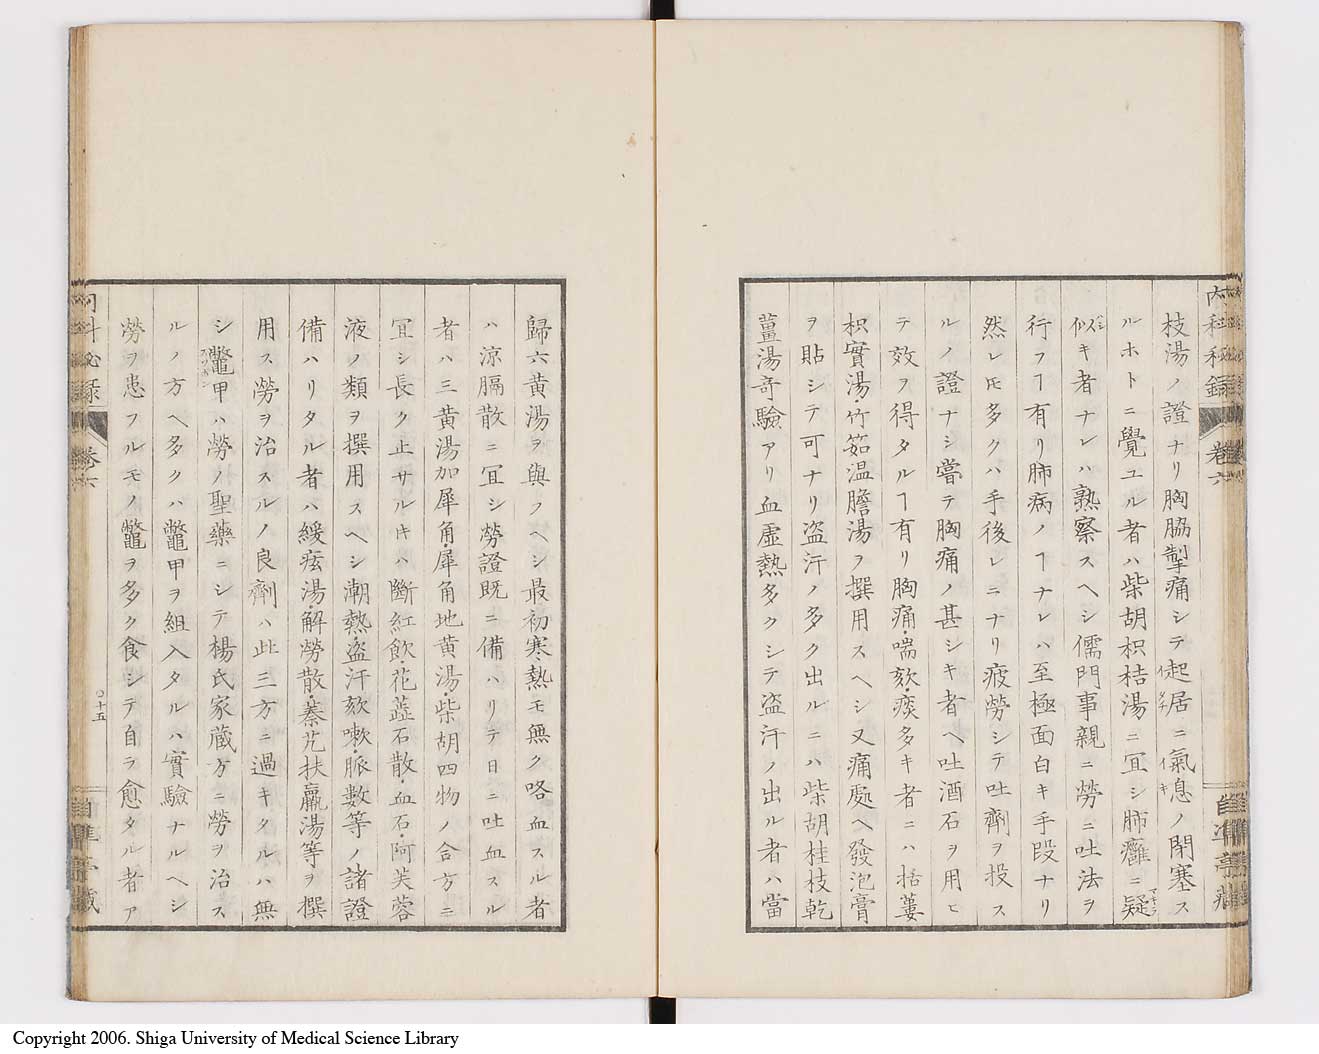 内科秘録 卷六 自準亭藏
枝湯ノ證ナリ胸脇掣痛シテ起居ニ氣息ノ閉塞ス
ルホトニ覺ユル者ハ柴胡枳桔湯ニ冝シ肺癰ニ疑
似キ者ナレハ熟察スヘシ儒門事親ニ勞ニ吐法ヲ
行フヿ有リ肺病ノヿナレハ至極面白キ手段ナリ
然レ𪜈多クハ手後レニナリ疲勞シテ吐劑ヲ投ス
ルノ證ナシ嘗テ胸痛ノ甚シキ者ヘ吐酒石ヲ用ヒ
テ效フ得タルヿ有リ胸痛・喘欬・痰多キ者ニハ括蔞
枳實湯・竹筎温膽湯ヲ撰用スヘシ又痛處ヘ發泡膏
ヲ貼シテ可ナリ盗汗ノ多ク出ルニハ柴胡桂枝乾
薑湯竒驗アリ血虛熱多クシテ盗汗ノ出ル者ハ當
歸六黄湯ヲ與フヘシ最初寒熱モ無ク咯血スル者
ハ涼膈散ニ冝シ勞證既ニ備ハリテ日ニ吐血スル
者ハ三黄湯加犀角・犀角地黄湯・柴胡四物ノ合方ニ
冝シ長ク止サルキハ斷紅飲・花蕋石散・血石・阿芙蓉
液ノ類ヲ撰用スヘシ潮熱・盗汗欬嗽・脈數等ノ諸證
備ハリタル者ハ緩痃湯・解勞散・秦艽扶羸湯等ヲ撰
用ス勞ヲ治スルノ良劑ハ此三方ニ過キタルハ無
シ鼈甲ハ勞ノ聖藥ニシテ楊氏家藏方ニ勞ヲ治ス
ルノ方ヘ多クハ鼈甲ヲ組入タルハ實驗ナルヘシ
勞ヲ患フルモノ鼈ヲ多ク食シテ自ラ愈タル者ア
内科秘録 卷六 ○十五 自準亭藏
Copyright 2006. Shiga University of Medical Science Library